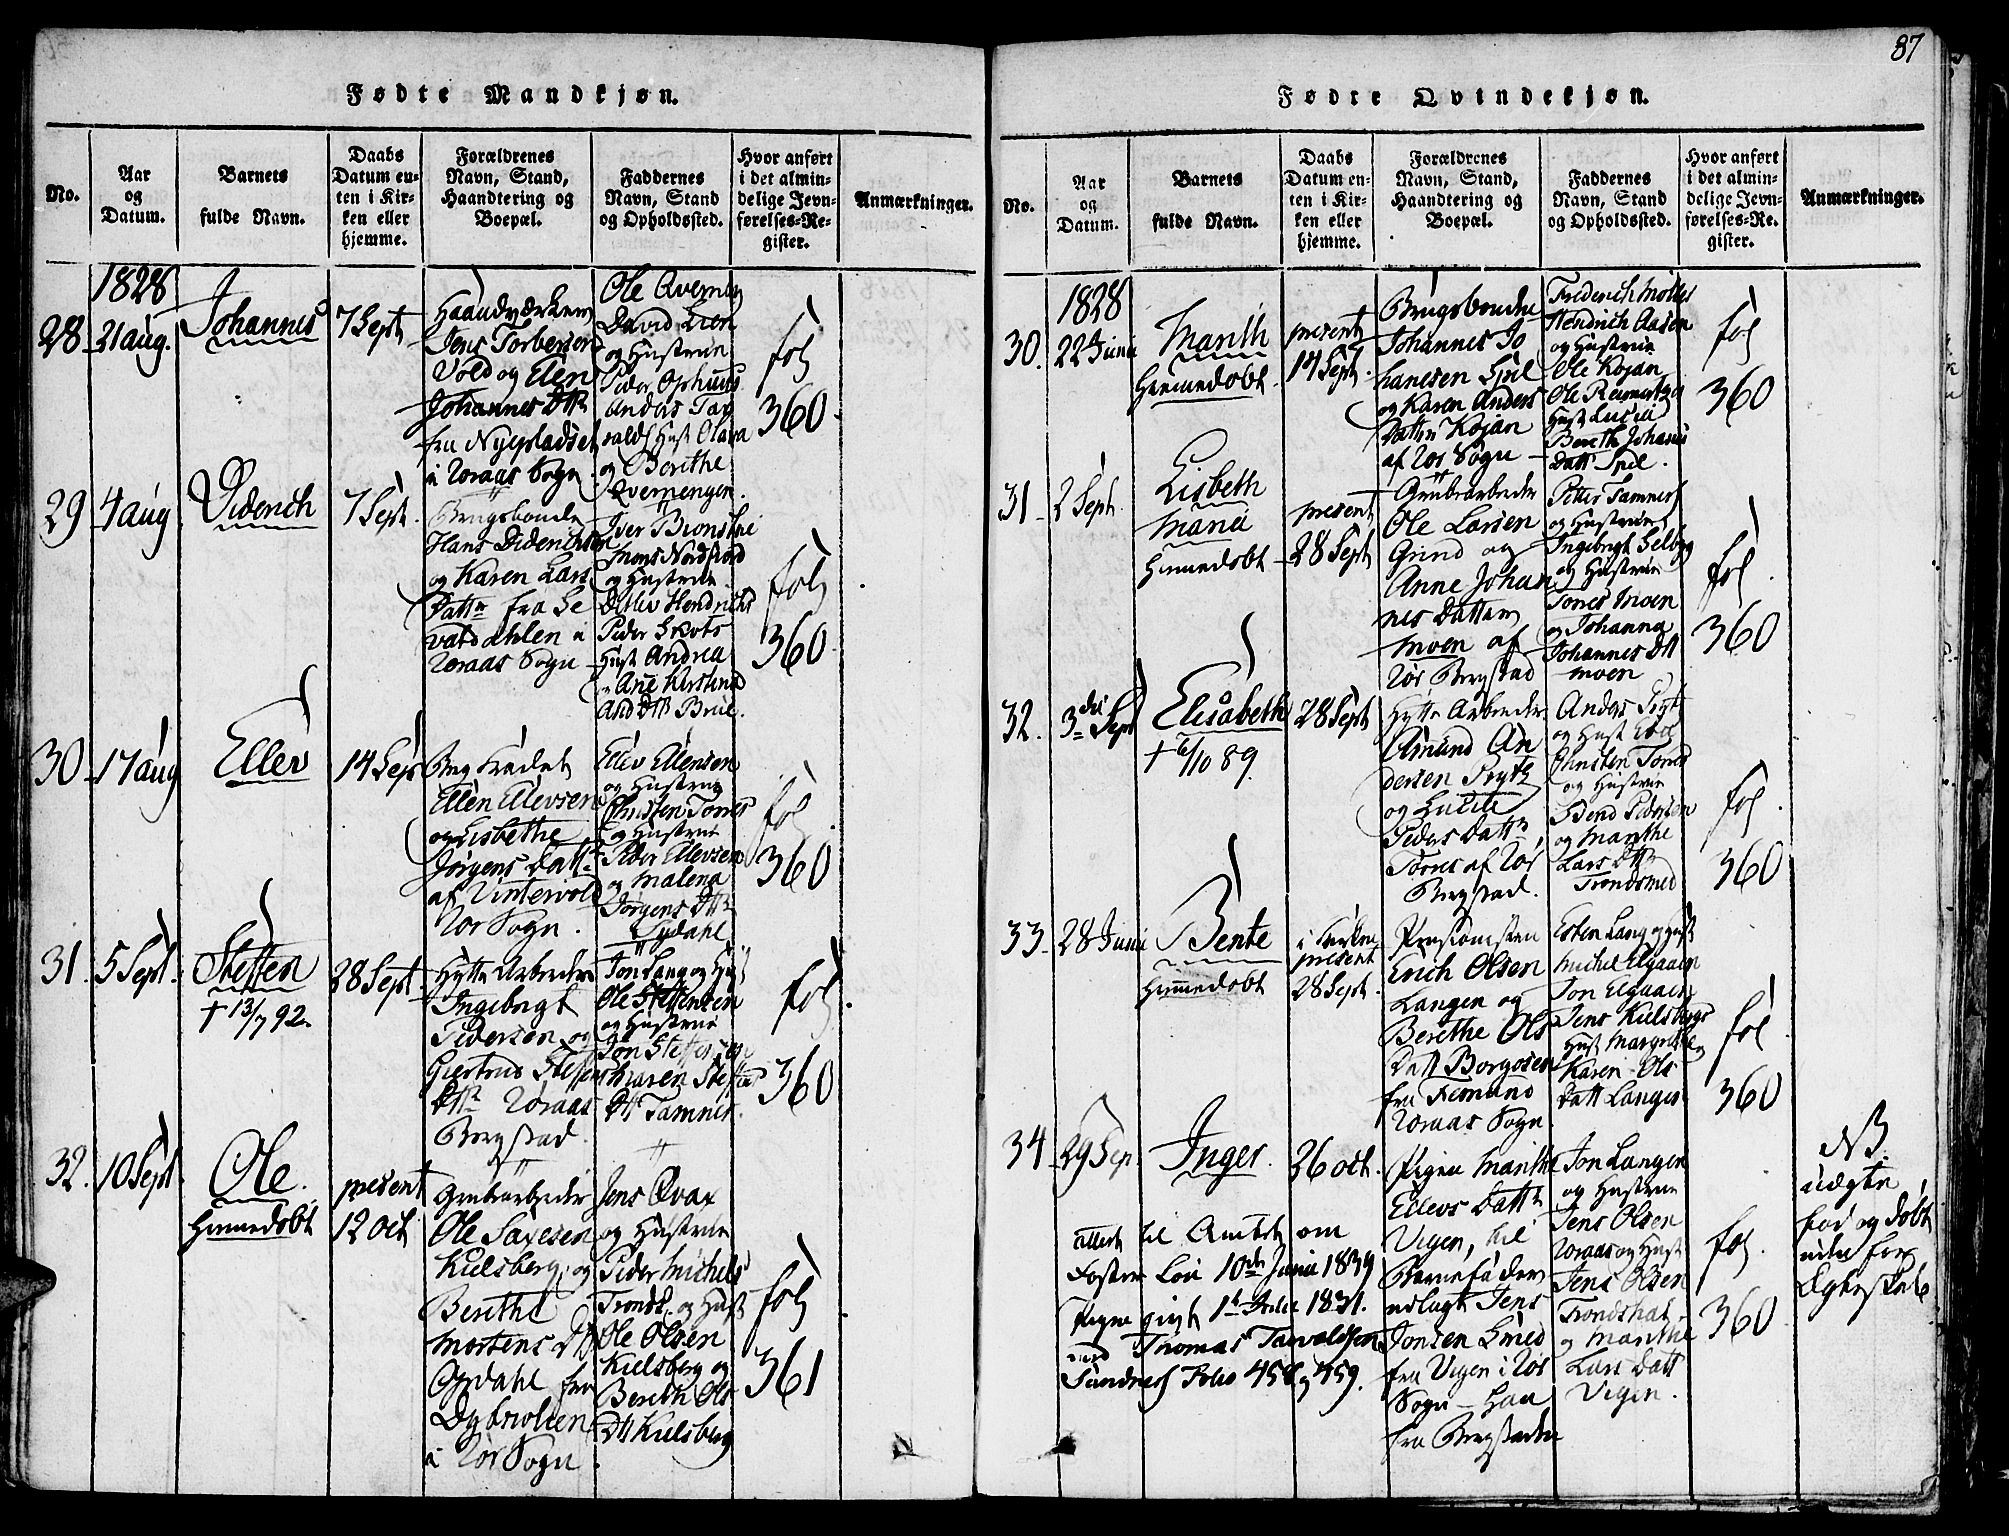 87
Fødte Mandkjøn.
No.
Aar
og
Datum.
Barnets
fulde Navn.
Daabs
Datum en-
ten i Kir-
ken eller
hjemme.
Forældrenes
Navn, Stand,
Haandtering og
Boepæl.
Faddernes
Navn, Stand
og Opholdssted.
Hvor anført
i det almin-
delige Jevn-
førelses-Re-
gister.
Anmærkninger.
1828
28
21 aug.
Johannes
7 Sept
Haandværkeren
Jens Torbersen
Vold og Elen
Johannes Dttr
fra Nyepladset
i Röraas Sogn
Ole Qverneng
David Lien
og Hustrue
Peder Ophuus
Anders Tax
vald Hust Olava
og Berethe
Qvernengen
fol
360
29
4 aug
Diderich
7 Sept.
Brugsbonde
Hans Diderichsen
og Karen Lars
Dattr fra Se
vatdahlen i
Röraas Sogn
Iver Bronskne
Mons Nordfiord
og Hustrue
Detlev Hendrichs
Peder Skots
Hust Andrea
Ane Kirstina
And Dttr Brue.
fol
360
30
17 aug
Ellev
14 Sept
Ellen Ellevsen
og Lisbethe
Jörgens Datt
af Vintervold
Rör Sogn.
Ellev Ellensen
og Hustrue
Christen Torres
og Hustrue
Peder Ellevsen
og Malena
Jörgens Dttr
Sydahl
fol
360
31.
5 Sept.
Steffen
† 13/7 92.
28 Sept
Hytte Arbeider
Ingebrigt
Pedersen og
Giertrud Steffens
Dttr Röraas
Bergstad.
Jon Lang og Hust
Ole Steffensen
og Hustrue
Jon Steffensen
Maren Steffens
Dtt Tamnes.
fol
360
32.
10 Sept
Ole.
Hiemmedöbt
present
12 Oct
Grubearbeider
Ole Saxesen
Kielsberg og
Berethe
Mortens Dtt
Opdahl fra
Dybsiölien
i Rör Sogn
Jens Qvax
og Hustrue
Peder Michels
Trond. og Hust
Ole Olsen
Kielsberg og
Bereth Ols
Dtt Kielsberg
fol
361
Fødte Qvindekjøn.
No.
Aar
og
Datum.
Barnets
fulde Navn.
Daabs
Datum en-
ten i Kir-
ken eller
hjemme.
Forældrenes
Navn, Stand,
Haandtering og
Boepæl.
Faddernes
Navn, Stand
og Opholdssted.
Hvor anført
i det almin-
delige Jevn-
førelses-Re-
gister.
Anmærkninger.
1828
30.
22 Junii
Marith
Hiemmedobt.
present
14 Sept.
Brugsbonde
Johannes Jo
hanesen Spel
og Karen Anders
Datter Kojan
af Rör Sogn
Frederich Möller
Hendrich Aasen
og Hustrue
Ole Kojan
Hust Lucia
Bereth Johanes
Datt Spel.
fol
360
31.
2 Sept.
Lisbeth
Maria
Hiemmedobt
present
28 Sept
Grubearbeider
Ole Larsen
Grind og
Anne Johan
nes Datter
Moen af
Rör Bergstad
Peter Tamnes
og Hustrue
Ingebrigt Selboyg
og Hustrue
Torres Moen
og Johanna
Johannes Dtt
Moen
fol
360
32.
3die Sept
Elisabeth
† 6/10 89.
28 Sept
Hytte Arbeider
Amund An
dersen Prytz
og Lucie
Peders Dattr
Torres af Rör
Bergstad.
Anders Prytz
og Hust
Christen Torres
og Hustrue
Bend Pedersen
og Marithe
Lars Dttr
Trondsmed
fol
360
33.
28 Junii
Bente
Hiemmedobt
i Kirken
present
28 Sept.
Pensionisten
Erich Olsen
Langen og
Berethe Ols
Datt Borgosen
fra Femund
Röraas Sogn
Esten Lang og Hust
Michel Elgaaen
Jon Elgaaen
Jens Kielsbergs
Hust Margrethe
Karen Ols
Datt Langen
fol
360
34
29 Sep.
Inger.
26 Oct.
Pigen Marithe
Ellevs Dattr
Vigen, til
Barnefader
udlagt Jens
Jonsen Smed
fra Vigen i Rör
Sogn – Han
fra Bergstaden
Jon Langen
og Hustrue
Jens Olsen
Röraas og Hust
Jens Olsen
Trondshat
og Marithe
Lars Datt
Vigen.
fol.
360
NB.
uægte
fod og döbt
uden for
Egteskab
Attest til Amtet om
Fosteren Lov 10de Junii 1839
Pigen givt 1t 1831.
med Thomas Tarvaldsen
Sundnes Folio 458 og 459.